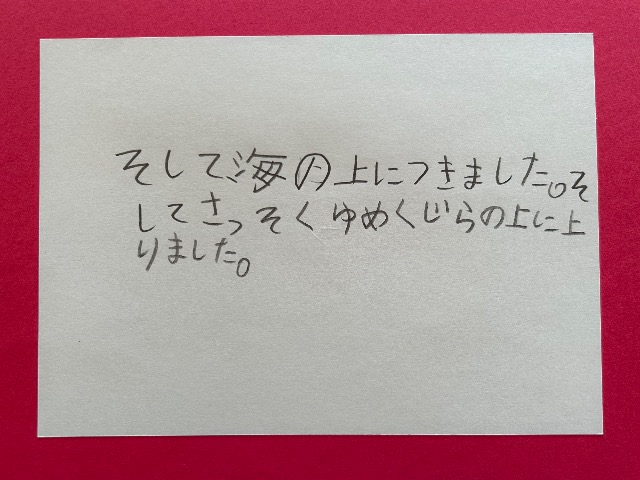 そして海の上につきました。そ
してさっそくゆめくじらの上に上
りました。